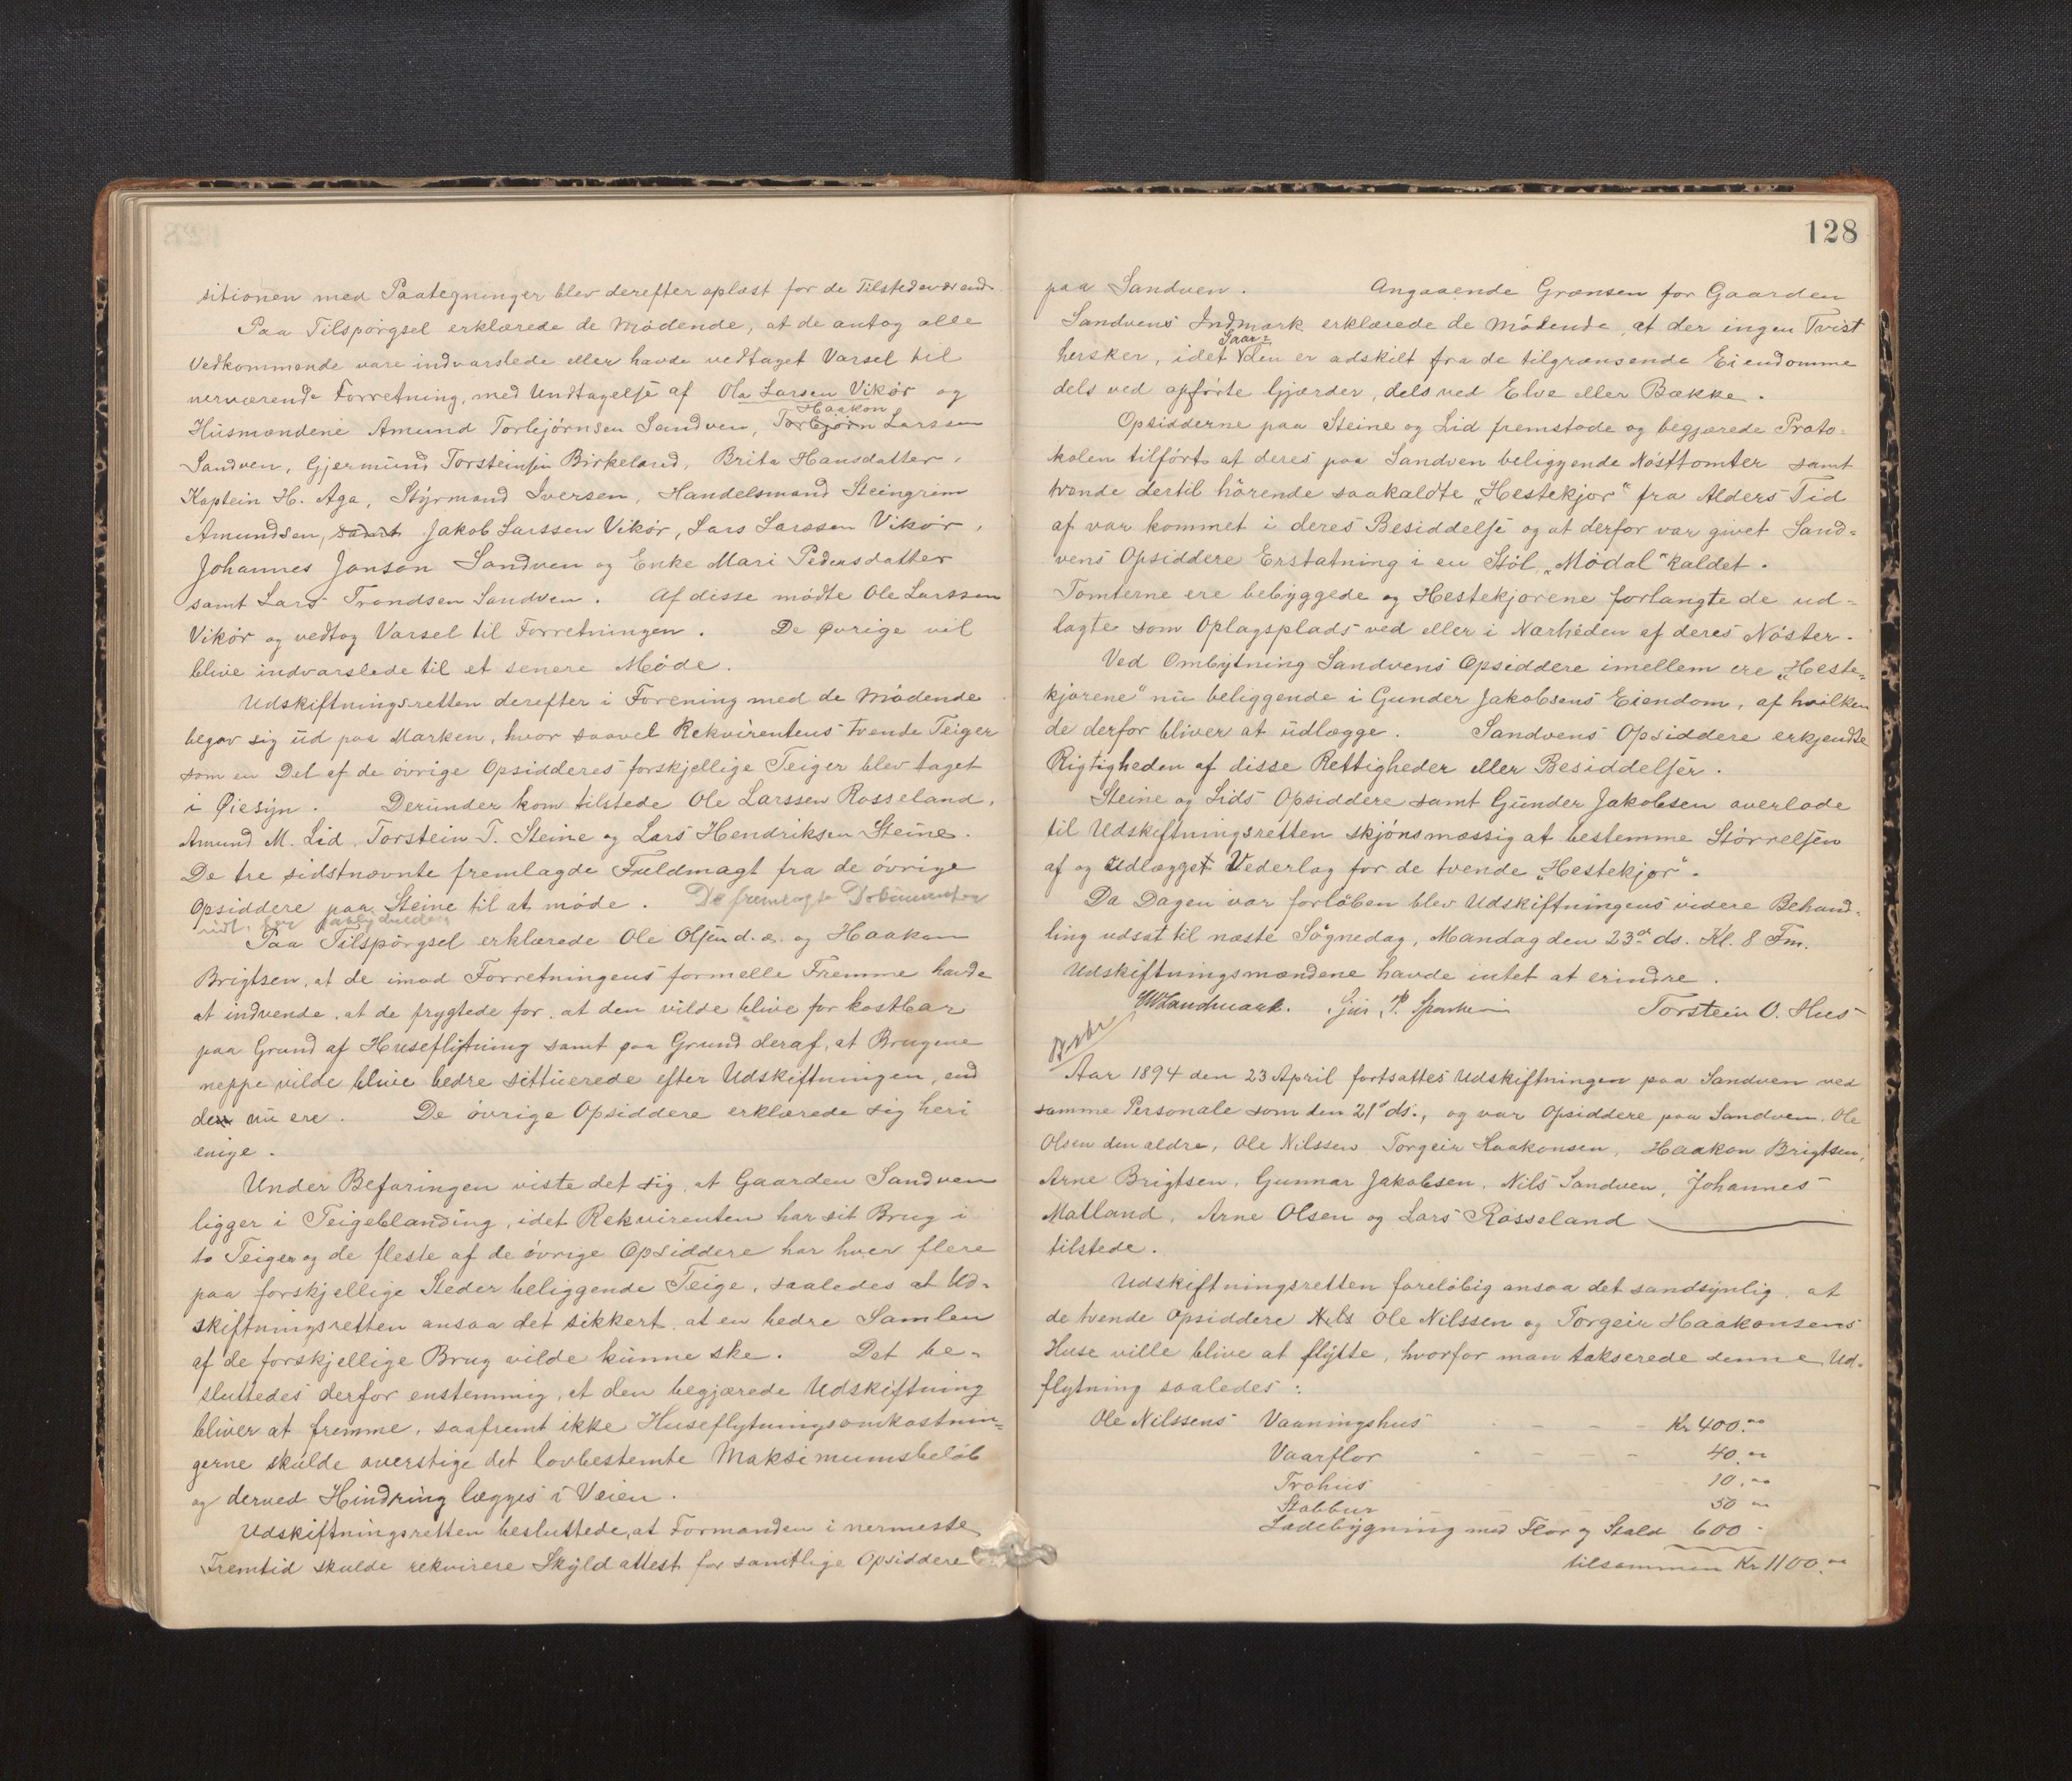 sitionen med Paategninger blev derefter oplæst for de Tilstedeværende.
Paa Tilspørgsel erklærede de Mødende, at de antog alle
Vedkommende vare indvarslede eller havde vedtaget Varsel til
nerværende Forretning, med Undtagelse af Ola Larsen Vikør og
Haakon
Husmændene Amund Torbjørnsen Sandven, Torbjørn Larssen
Sandven, Gjermund Torsteinsen Birkeland, Brita Hansdatter,
Kaptein H. Aga, Styrmand Iversen, Handelsmand Steingrim
Amundsen, samt Jakob Larssen Vikør, Lars Larssen Vikør,
Johannes Janson Sandven og Enke Mari Pedersdatter
samt Lars Trondsen Sandven. Af disse mødte Ole Larssen
Vikör og vedtog Varsel til Forretningen. De Øvrige vil
blive indvarslede til et senere Møde.
Udskiftningsretten derefter i Forening med de Mødende
begav sig ud paa Marken, hvor saavel Rekvirentens tvende Teiger
som en Del af de övrige Opsidderes forskjellige Teiger blev taget
i Øiesyn. Derunder kom tilstede Ole Larssen Rosseland,
Amund M. Lid, Torstein T. Steine og Lars Hendriksen Steine.
De tre sidstnævnte fremlagde Fuldmagt fra de övrige
Opsiddere paa Steine til at møde. De fremlagte Dokumenter
Paa Tilspörgsel erklærede Ole Olsen d. æ. og Haakon
Brigtsen, at de imod Forretningens formelle Fremme havde
at indvende, at de frygtede for, at den vilde blive for kostbar
paa Grund af Huseflytning samt paa Grund deraf, at Brugene
neppe vilde blive bedre sittuerede efter Udskiftningen, end
de nu ere. De övrige Opsiddere erklærede sig heri
enige.
Under Befaringen viste det sig, at Gaarden Sandven
ligger i Teigeblanding, idet Rekvirenten har sit Brug i
to Teiger og de fleste af de övrige Opsiddere har hver flere
paa forskjellige Steder beliggende Teige, saaledes at Ud-
skiftningsretten ansaa det sikkert, at en bedre Samlen
af de forskjellige Brug vilde kunne ske. Det be-
sluttedes derfor enstemmig, at den begjærede Udskiftning
bliver at fremme, saafremt ikke Huseflytningsomkostnin-
gerne skulde overstige det lovbestemte Maksimumsbeløb
og derved Hindring lægges i Veien.
Udskiftningsretten besluttede, at Formanden i nermeste
Fremtid skulde rekvirere Skyldattest for samtlige Opsiddere
128
paa Sandven. Angaaende Grænsen for Gaarden
Sandvens Indmark erklærede de Mödende, at der ingen Tvist
Gaar-
hersker, idet den er adskilt fra de tilgrænsende Eiendomme
dels ved opførte Gjærder, dels ved Elve eller Bække.
Opsidderne paa Steine og Lid fremstode og begjærede Proto-
kolen tilført at deres paa Sandven beliggende Nösttomter samt
tvende dertil hörende saakaldte „Hestekjor“ fra Alders Tid
af var kommet i deres Besiddelse og at derfor var givet Sand-
vens Opsiddere Erstatning i en Støl „Mödal“ kaldet.
Tomterne ere bebyggede og Hestekjorene forlangte de ud-
lagte som Oplagsplads ved eller i Nærheden af deres Nöster.
Ved Ombytning Sandvens Opsiddere imellem ere „Heste-
kjorene“ nu beliggende i Gunder Jakobsens Eiendom, af hvilken
de derfor bliver at udlægge. Sandvens Opsiddere erkjendte
Rigtigheden af disse Rettigheder eller Besiddelser.
Steine og Lids Opsiddere samt Gunder Jakobsen overlode
til Udskiftningsretten skjönsmæssig at bestemme Störrelsen
af og udlægget Vederlag for de tvende „Hestekjor“.
Da Dagen var forlöben blev Udskiftningens videre Behand-
ling udsat til næste Sögnedag, Mandag den 23de ds. Kl. 8 Fm.
Udskiftningsmændene havde intet at erindre.
Landmark. Torstein O. Hus
Aar 1894 den 23 April fortsattes Udskiftningen paa Sandven ved
samme Personale som den 21de ds., og var Opsiddere paa Sandven, Ole
Olsen den ældre, Ole Nilssen, Torgeir Haakonsen, Haakon Brigtsen,
Arne Brigtsen, Gunnar Jakobsen, Nils Sandven, Johannes
Matland, Arne Olsen og Lars Rosseland
tilstede.
Udskiftningsretten foreløbig ansaa det sandsynlig, at
de tvende Opsiddere Nils Ole Nilssen og Torgeir Haakonsens
Huse ville blive at flytte, hvorfor man takserede denne Ud-
flytning saaledes:
Ole Nilssens Vaaningshus - - - Kr 400.00
Vaarflor - - - - 40.00
Trøhus - - - 10.00
Stabbur - - - 50 00
Ladebygning med Flor og Stald 600 -
tilsammen Kr 1100.00